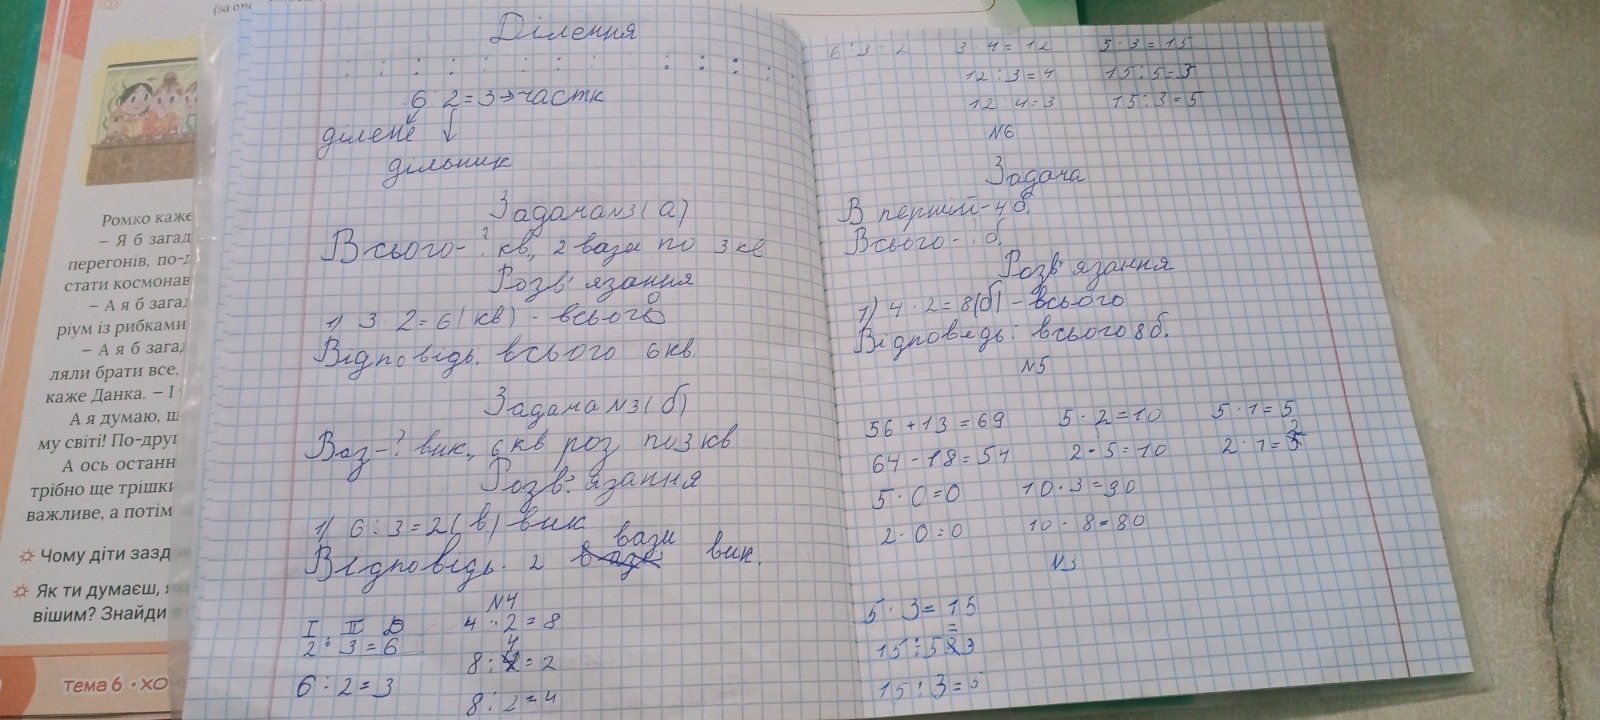 (за оп
Ромко каже
– Я б загад
перегонів, по-д
стати космонав
– А я б загад
ріум із рибками
– А я б загад
ляли брати все,
каже Данка. – І
А я думаю, щ
му світі! По-друг
А ось останн
трібно ще трішки
важливе, а потім
Чому діти зазд
Як ти думаєш,
вішим? Знайди
Тема 6 • ХО
Ділення
: : : : : : : : : : : :
6 2 = 3 → частк
ділене
дільник
Задача №3 (а)
Всього - ? кв., 2 вази по 3 кв
Розв'язання
1) 3 · 2 = 6 (кв) - всього
Відповідь: всього 6 кв.
Задача №3 (б)
Ваз - ? вик., 6 кв роз по 3 кв
Розв'язання
1) 6 : 3 = 2 (в.) вик
вази
Відповідь. 2 вик.
№4
I II D
2 · 3 = 6
6 : 2 = 3
4 · 2 = 8
8 : 4 = 2
8 : 2 = 4
6 : 3 = 2 3 · 4 = 12 5 · 3 = 15
12 : 3 = 4 15 : 5 = 3
12 : 4 = 3 15 : 3 = 5
№6
Задача
В перший - 4 б.
Всього - ? б.
Розв'язання
1) 4 · 2 = 8 (б) - всього
Відповядь: всього 8 б.
№5
56 + 13 = 69 5 · 2 = 10 5 · 1 = 5
64 - 18 = 54 2 · 5 = 10 2 · 1 = 2
5 · 0 = 0 10 · 3 = 30
2 · 0 = 0 10 · 8 = 80
№3
5 · 3 = 15
15 : 5 = 3
15 : 3 = 5